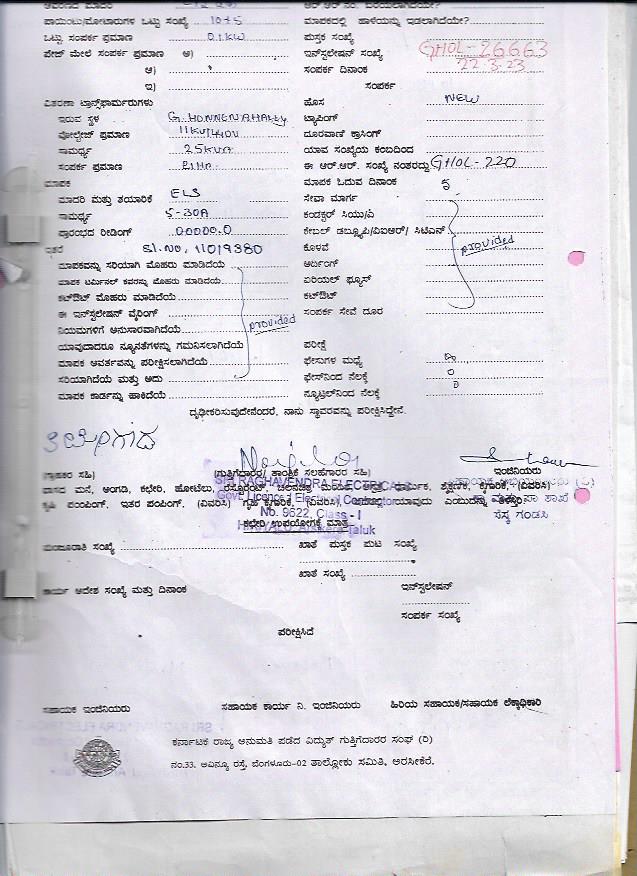 ಪಾಯಿಂಟು/ಮೋಟಾರುಗಳ ಒಟ್ಟು ಸಂಖ್ಯೆ 10+5
ಮಾಪಕದಲ್ಲಿ ಹಾಳೆಯನ್ನು ಇಡಲಾಗಿದೆಯೇ?
ಒಟ್ಟು ಸಂಪರ್ಕ ಪ್ರಮಾಣ 0.1KW
ಪುಸ್ತಕ ಸಂಖ್ಯೆ
ಪೇಜ್ ಮೇಲೆ ಸಂಪರ್ಕ ಪ್ರಮಾಣ ಅ)
ಇನ್‌ಸ್ಟಲೇಷನ್ ಸಂಖ್ಯೆ GHOL-26663
ಆ)
ಸಂಪರ್ಕ ದಿನಾಂಕ 22.3.23
ಇ)
ಸಂಪರ್ಕ
ವಿತರಣಾ ಟ್ರಾನ್ಸ್‌ಫಾರ್ಮರುಗಳು
ಹೊಸ NEW
ಇರುವ ಸ್ಥಳ G. HONNENAHALLY
ಟ್ಯಾಪಿಂಗ್
ವೋಲ್ಟೇಜ್ ಪ್ರಮಾಣ 11KV/440V
ದೂರವಾಣಿ ಕ್ರಾಸಿಂಗ್
ಸಾಮರ್ಥ್ಯ 25KVA
ಯಾವ ಸಂಖ್ಯೆಯ ಕಂಬದಿಂದ
ಸಂಪರ್ಕ ಪ್ರಮಾಣ
ಈ ಆರ್.ಆರ್. ಸಂಖ್ಯೆ ನಂತರದ್ದು GHOL-220
ಮಾಪಕ
ಮಾಪಕ ಓದುವ ದಿನಾಂಕ 5
ಮಾದರಿ ಮತ್ತು ತಯಾರಿಕೆ ELS
ಸೇವಾ ಮಾರ್ಗ
ಸಾಮರ್ಥ್ಯ 5-30A
ಕಂಡಕ್ಟರ್ ಸಿಯು/ಎ
ಪ್ರಾರಂಭದ ರೀಡಿಂಗ್ 00000.0
ಕೇಬಲ್ ಡಬ್ಲ್ಯೂಪಿ/ವಿಐಆರ್/ ಸಿಟಿಎಸ್
ಇತರೆ Sl.No, 11019380
ಕೊಳವೆ provided
ಮಾಪಕವನ್ನು ಸರಿಯಾಗಿ ಮೊಹರು ಮಾಡಿದೆಯೆ
ಅರ್ಥಿಂಗ್
ಮಾಪಕ ಟರ್ಮಿನಲ್ ಕವರನ್ನು ಮೊಹರು ಮಾಡಿದೆಯೆ
ಏರಿಯಲ್ ಫ್ಯೂಸ್
ಕಟ್‌ಔಟ್ ಮೊಹರು ಮಾಡಿದೆಯೆ
ಕಟ್‌ಔಟ್
ಈ ಇನ್‌ಸ್ಟಲೇಷನ್ ವೈರಿಂಗ್
ಸಂಪರ್ಕ ಸೇವೆ ದೂರ
ನಿಯಮಗಳಿಗೆ ಅನುಸಾರವಾಗಿದೆಯೆ provided
ಯಾವುದಾದರೂ ನ್ಯೂನತೆಗಳನ್ನು ಗಮನಿಸಲಾಗಿದೆಯೆ
ಪರೀಕ್ಷೆ
ಮಾಪಕ ಆವರ್ತವನ್ನು ಪರೀಕ್ಷಿಸಲಾಗಿದೆಯೆ
ಫೇಸುಗಳ ಮಧ್ಯೆ
ಸರಿಯಾಗಿದೆಯೆ ಮತ್ತು ಅದು
ಫೇಸ್‌ನಿಂದ ನೆಲಕ್ಕೆ 0
ಮಾಪಕ ಕಾರ್ಡನ್ನು ಹಾಕಿದೆಯೆ
ನ್ಯೂಟ್ರಲ್‌ನಿಂದ ನೆಲಕ್ಕೆ
ದೃಢೀಕರಿಸುವುದೇನೆಂದರೆ, ನಾನು ಸ್ಥಾವರವನ್ನು ಪರೀಕ್ಷಿಸಿದ್ದೇನೆ.
(ಗ್ರಾಹಕರ ಸಹಿ)
(ಗುತ್ತಿಗೆದಾರರ/ ತಾಂತ್ರಿಕ ಸಲಹೆಗಾರರ ಸಹಿ)
ಇಂಜಿನಿಯರು
SRI RAGHAVENDRA ELECTRICALS
ವಾಸದ ಮನೆ, ಅಂಗಡಿ, ಕಛೇರಿ, ಹೋಟೆಲು,
Govt. Licenced Electrical Contractor
ಕೃಷಿ ಪಂಪಿಂಗ್, ಇತರ ಪಂಪಿಂಗ್, (ವಿವರಿಸಿ) ಗೃಹ ಕೈಗಾರಿಕೆ,
No. 9622, Class - I
ಕಛೇರಿ ಉಪಯೋಗಕ್ಕೆ ಮಾತ್ರ
ಮಂಜೂರಾತಿ ಸಂಖ್ಯೆ
ಖಾತೆ ಪುಸ್ತಕ ಪುಟ ಸಂಖ್ಯೆ
ಖಾತೆ ಸಂಖ್ಯೆ
ಕಾರ್ಯ ಆದೇಶ ಸಂಖ್ಯೆ ಮತ್ತು ದಿನಾಂಕ
ಇನ್‌ಸ್ಟಲೇಷನ್
ಸಂಪರ್ಕ ಸಂಖ್ಯೆ
ಪರೀಕ್ಷಿಸಿದೆ
ಸಹಾಯಕ ಇಂಜಿನಿಯರು
ಸಹಾಯಕ ಕಾರ್ಯ ನಿ. ಇಂಜಿನಿಯರು
ಹಿರಿಯ ಸಹಾಯಕ/ಸಹಾಯಕ ಲೆಕ್ಕಾಧಿಕಾರಿ
ಕರ್ನಾಟಕ ರಾಜ್ಯ ಅನುಮತಿ ಪಡೆದ ವಿದ್ಯುತ್ ಗುತ್ತಿಗೆದಾರರ ಸಂಘ (ರಿ)
ನಂ.33, ಅವಿನ್ಯೂ ರಸ್ತೆ, ಬೆಂಗಳೂರು-02 ತಾಲ್ಲೋಕು ಸಮಿತಿ, ಅರಸೀಕೆರೆ.